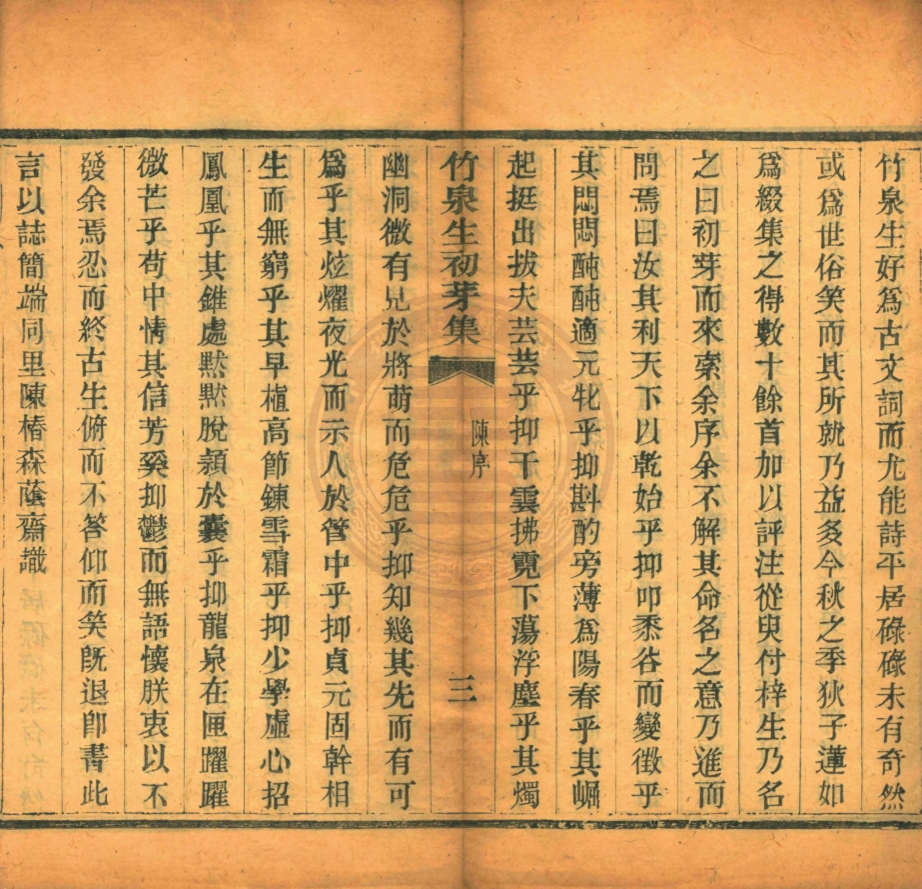 竹泉生好爲古文詞而尤能詩平居碌碌未有奇然
或爲世俗笑而其所就乃益多今秋之季狄子蓮如
爲綴集之得數十餘首加以評注從臾付梓生乃名
之曰初芽而來索余序余不解其命名之意乃進而
問焉曰汝其利天下以乾始乎抑叩黍谷而變徵乎
其悶悶酕酕適元牝乎抑斟酌旁薄爲陽春乎其崛
起挺出拔夫芸芸乎抑干雲拂霓下蕩浮塵乎其燭
竹泉生初芽集
陳序
三
幽洞微有見於將萌而危危乎抑知幾其先而有可
爲乎其炫燿夜光而示人於管中乎抑貞元固幹相
生而無窮乎其早植高節鍊雪霜乎抑少學虛心招
鳳凰乎其錐處黙黙脫潁於囊乎抑龍泉在匣躍躍
微芒乎苟中情其信芳奚抑鬱而無語懷朕衷以不
發余焉忍而終古生俯而不答仰而笑旣退卽書此
言以誌簡端同里陳椿森蔭齋識